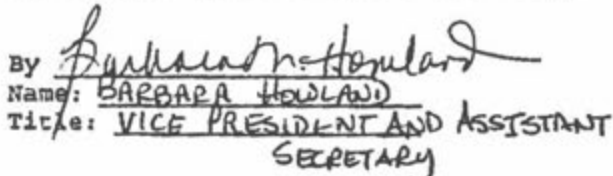 By Barbara M. Howland
Name: BARBARA HOWLAND
Title: VICE PRESIDENT AND ASSISTANT
SECRETARY